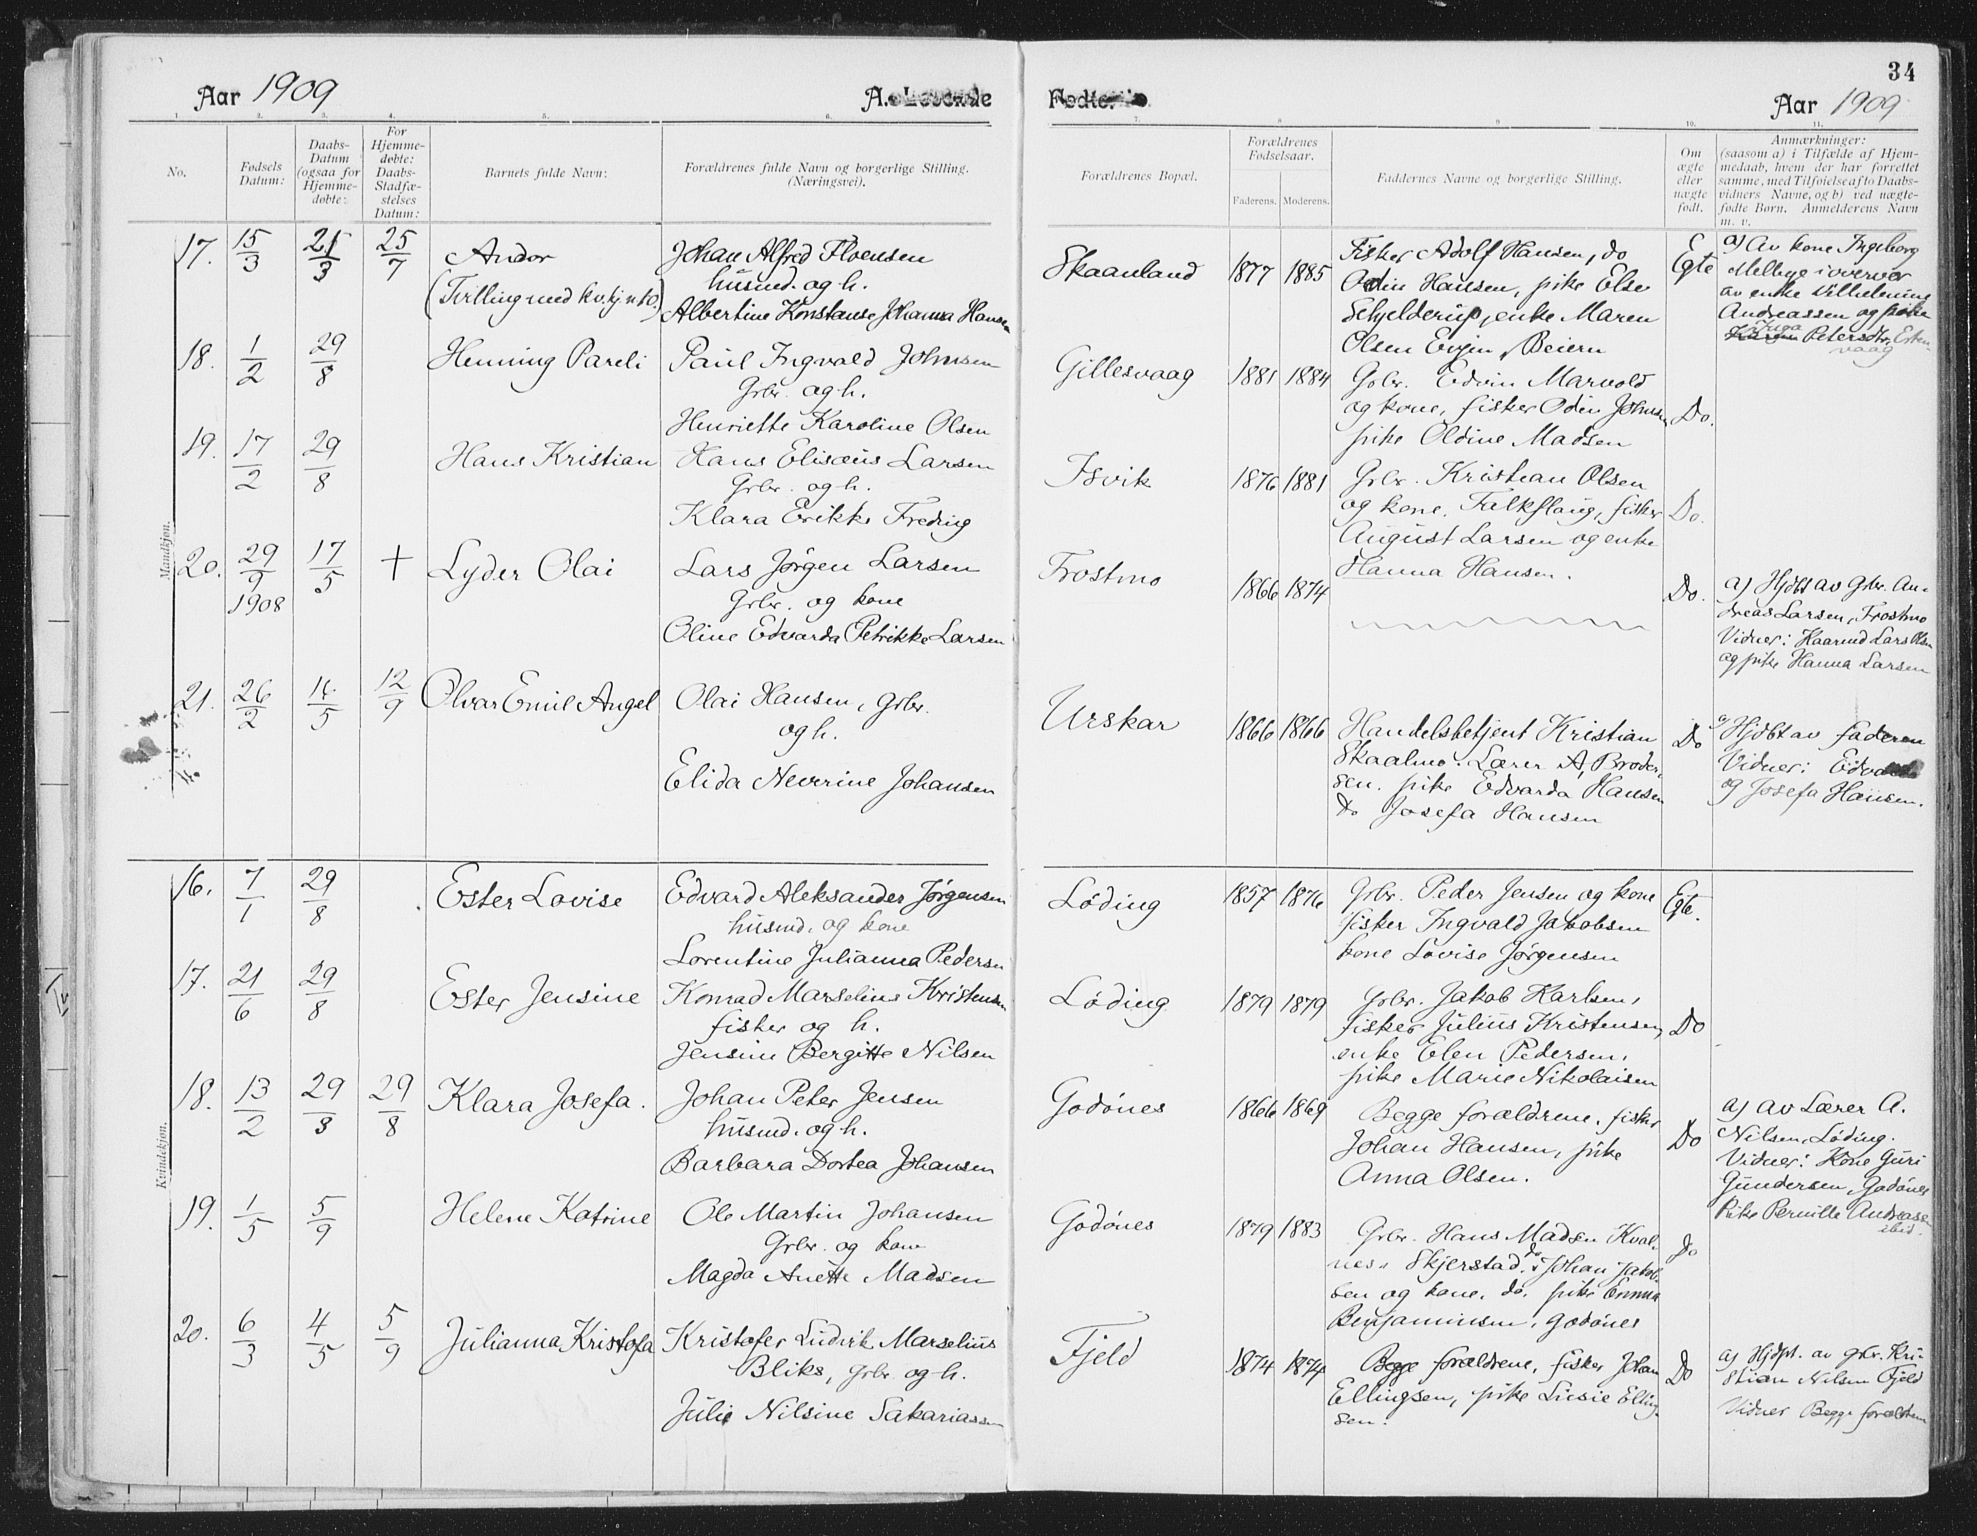 34
Aar 1909
A. Levende
Fødte.
Aar 1909
1. 2. 3. 4. 5. 6. 7. 8. 9. 10. 11.
No.
Fødsels
Datum:
Daabs-
Datum
(ogsaa for
Hjemme-
døbte:
For
Hjemme-
døbte:
Daabs-
Stadfæ-
stelses
Datum:
Barnets fulde Navn:
Forældrenes fulde Navn og borgerlige Stilling.
(Næringsvei).
Forældrenes Bopæl.
Forældrenes
Fødselsaar.
Faderens. Moderens.
Faddernes Navne og borgerlige Stilling.
Om
ægte
eller
uægte
født.
Anmærkninger:
(saasom a) i Tilfælde af Hjem-
medaab, hvem der har forrettet
samme, med Tilføielse af to Daabs-
vidners Navne, og b) ved uægte-
fødte Børn. Anmelderens Navn
m. v.
Mandkjøn.
17. 15/3 21/3 25/7 Andor
(Tvilling med kv.kj. n 10.)
Johan Alfred
husmd. og h.
Albertine Konstanse Johanna Hansen
Skaanland 1877 1885
Fisker Adolf Hansen, do
Odin Hansen, pike Else
Schjelderup, enke Maren
Olsen Evjen, Beiern
Egte
a) Av kone Ingeborg
Melbye i overvær
av enke Vilhelmine
Andreassen og pike
Inga
Karen Petersdtr, Esten-
vaag
18. 1/2 29/8 Henning Pareli
Paul Ingvald Johnsen
Grbr. og h.
Henriette Karoline Olsen
Gillesvaag 1881 1884
Grbr. Edvin Marvold
og kone, fisker Odin Johnsen
pike Oldine Madsen
Do.
19. 17/2 29/8 Hans Kristian
Hans Elisæus Larsen
Grbr. og h.
Klara Erikke Freding
Isvik 1876 1881
Grbr. Kristian Olsen
og kone, Falkflaug, fisker
August Larsen og enke
Hanna Hansen.
Do.
20. 29/9 1908 17/5 + Lyder Olai
Lars Jørgen Larsen
Grbr. og kone
Oline Edvarda Petrikke Larsen
Frostmo 1866 1874
Do.
a) Hjdbt av Grbr. An-
dreas Larsen, Frostmo
Vidner: Kaarmd Lars Olsen
og pike Hanna Larsen
21. 26/2 16/5 12/9 Olvar Emil Angel
Olai Hansen, Grbr.
og h.
Elida Neverine Johansen
Urskar 1866 1866
Handelsbetjent Kristian
Skaalmo. Lærer A. Broder-
sen. pike Edvarda Hansen
do Josefa Hansen
Do
a) Hjdbt av faderen
Vidner: Edvarda
og Josefa Hansen.
Kvindekjøn.
16. 7/1 29/8 Ester Lovise
Edvard Aleksander Jørgensen
husmd. og kone
Lorentine Julianna Pedersen
Løding 1857 1876
Grbr. Peder Jensen og kone
fisker Ingvald Jakobsen
kone Lovise Jørgensen
Egte.
17. 21/6 29/8 Ester Jensine
Konrad Marselius Kristensen
fisker og h.
Jensine Bergitte Nilsen
Løding 1879 1879
Grbr. Jakob Karlsen,
fisker Julius Kristensen,
enke Elen Pedersen,
pike Marie Nikolaisen
Do
18. 13/2 29/3 29/8 Klara Josefa.
Johan Peter Jensen
husmd. og h.
Barbara Dortea Johansen
Godønes 1866 1869
Begge forældrene, fisker
Johan Hansen, pike
Anna Olsen.
Do
a) av Lærer A.
Nilsen, Løding.
Vidner: Kone Guri
Gundersen, Godønes
Pike Pernille Andreassen
ibid.
19. 1/5 5/9 Helene Katrine
Ole Martin Johansen
Grbr. og kone
Magda Anette Madsen
Godønes 1879 1883
Grbr. Hans Madsen Kval-
nes, Skjerstad, do Johan Jakob-
sen og kone, do, pike Emma
Benjaminsen, Godønes
Do
20. 6/3 4/5 5/9 Julianna Kristofa
Kristofer Ludvik Marselius
Bliks, Grbr. og h.
Julie Nilsine Sakariassen
Fjeld 1874 1874
Begge forældrene, fisker Johan
Ellingsen, pike Lusie Elling-
sen.
Do
a) Hjdpt. av grbr. Kri-
stian Nilsen Fjeld
Vidner Begge forældrene